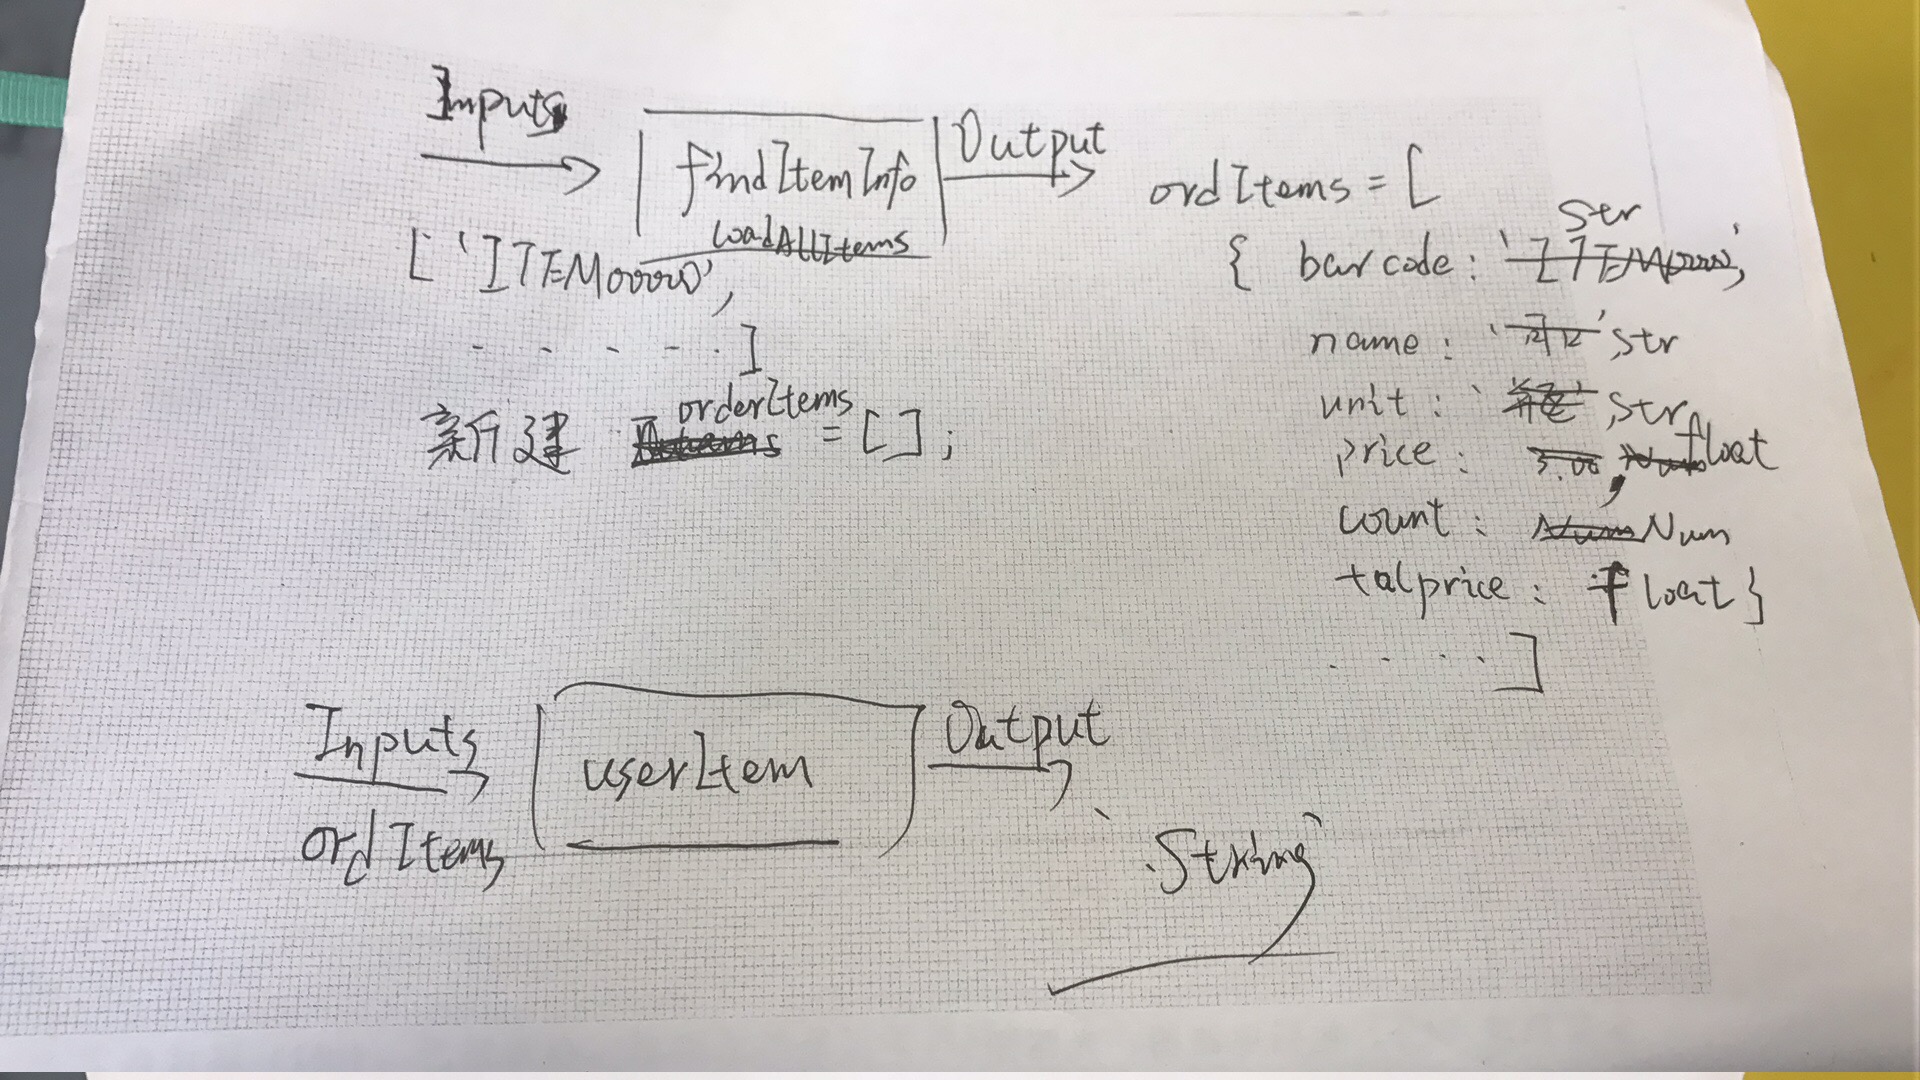 Inputs
findItemInfo
loadAllItems
Output
['ITEM00000',
. . . . .]
新建 orderItems = [];
ordItems = [
{ barcode: Str 'ITEM00000',
name: '可口' ,str
unit: ,str
price: 3.00, float
count: Num
talprice: float}
. . . .]
Inputs
ordItems
userItem
Output
`String`